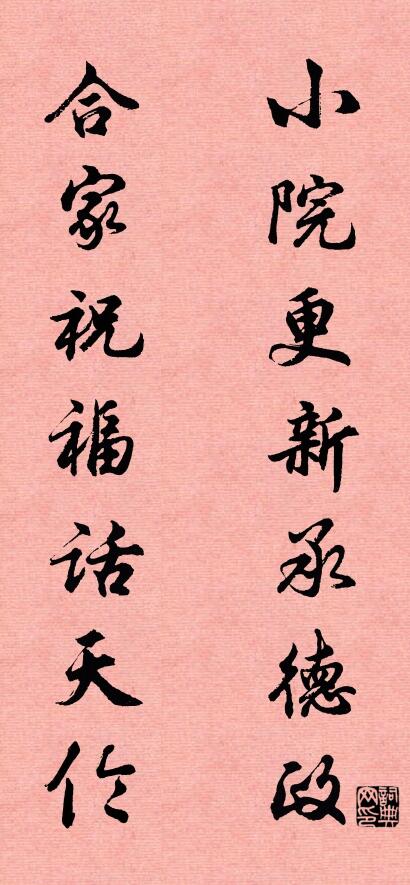 小院更新承德政
合家祝福话天伦
詞典网印